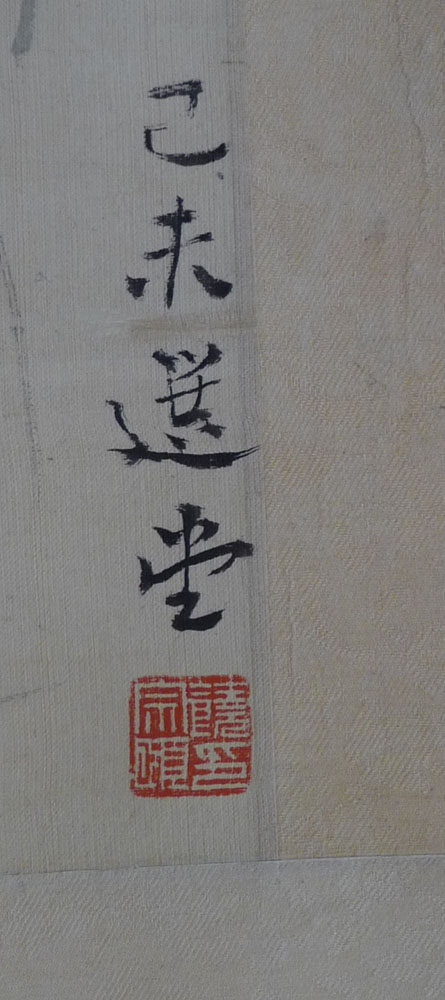 己未選堂
饒印
宗頤